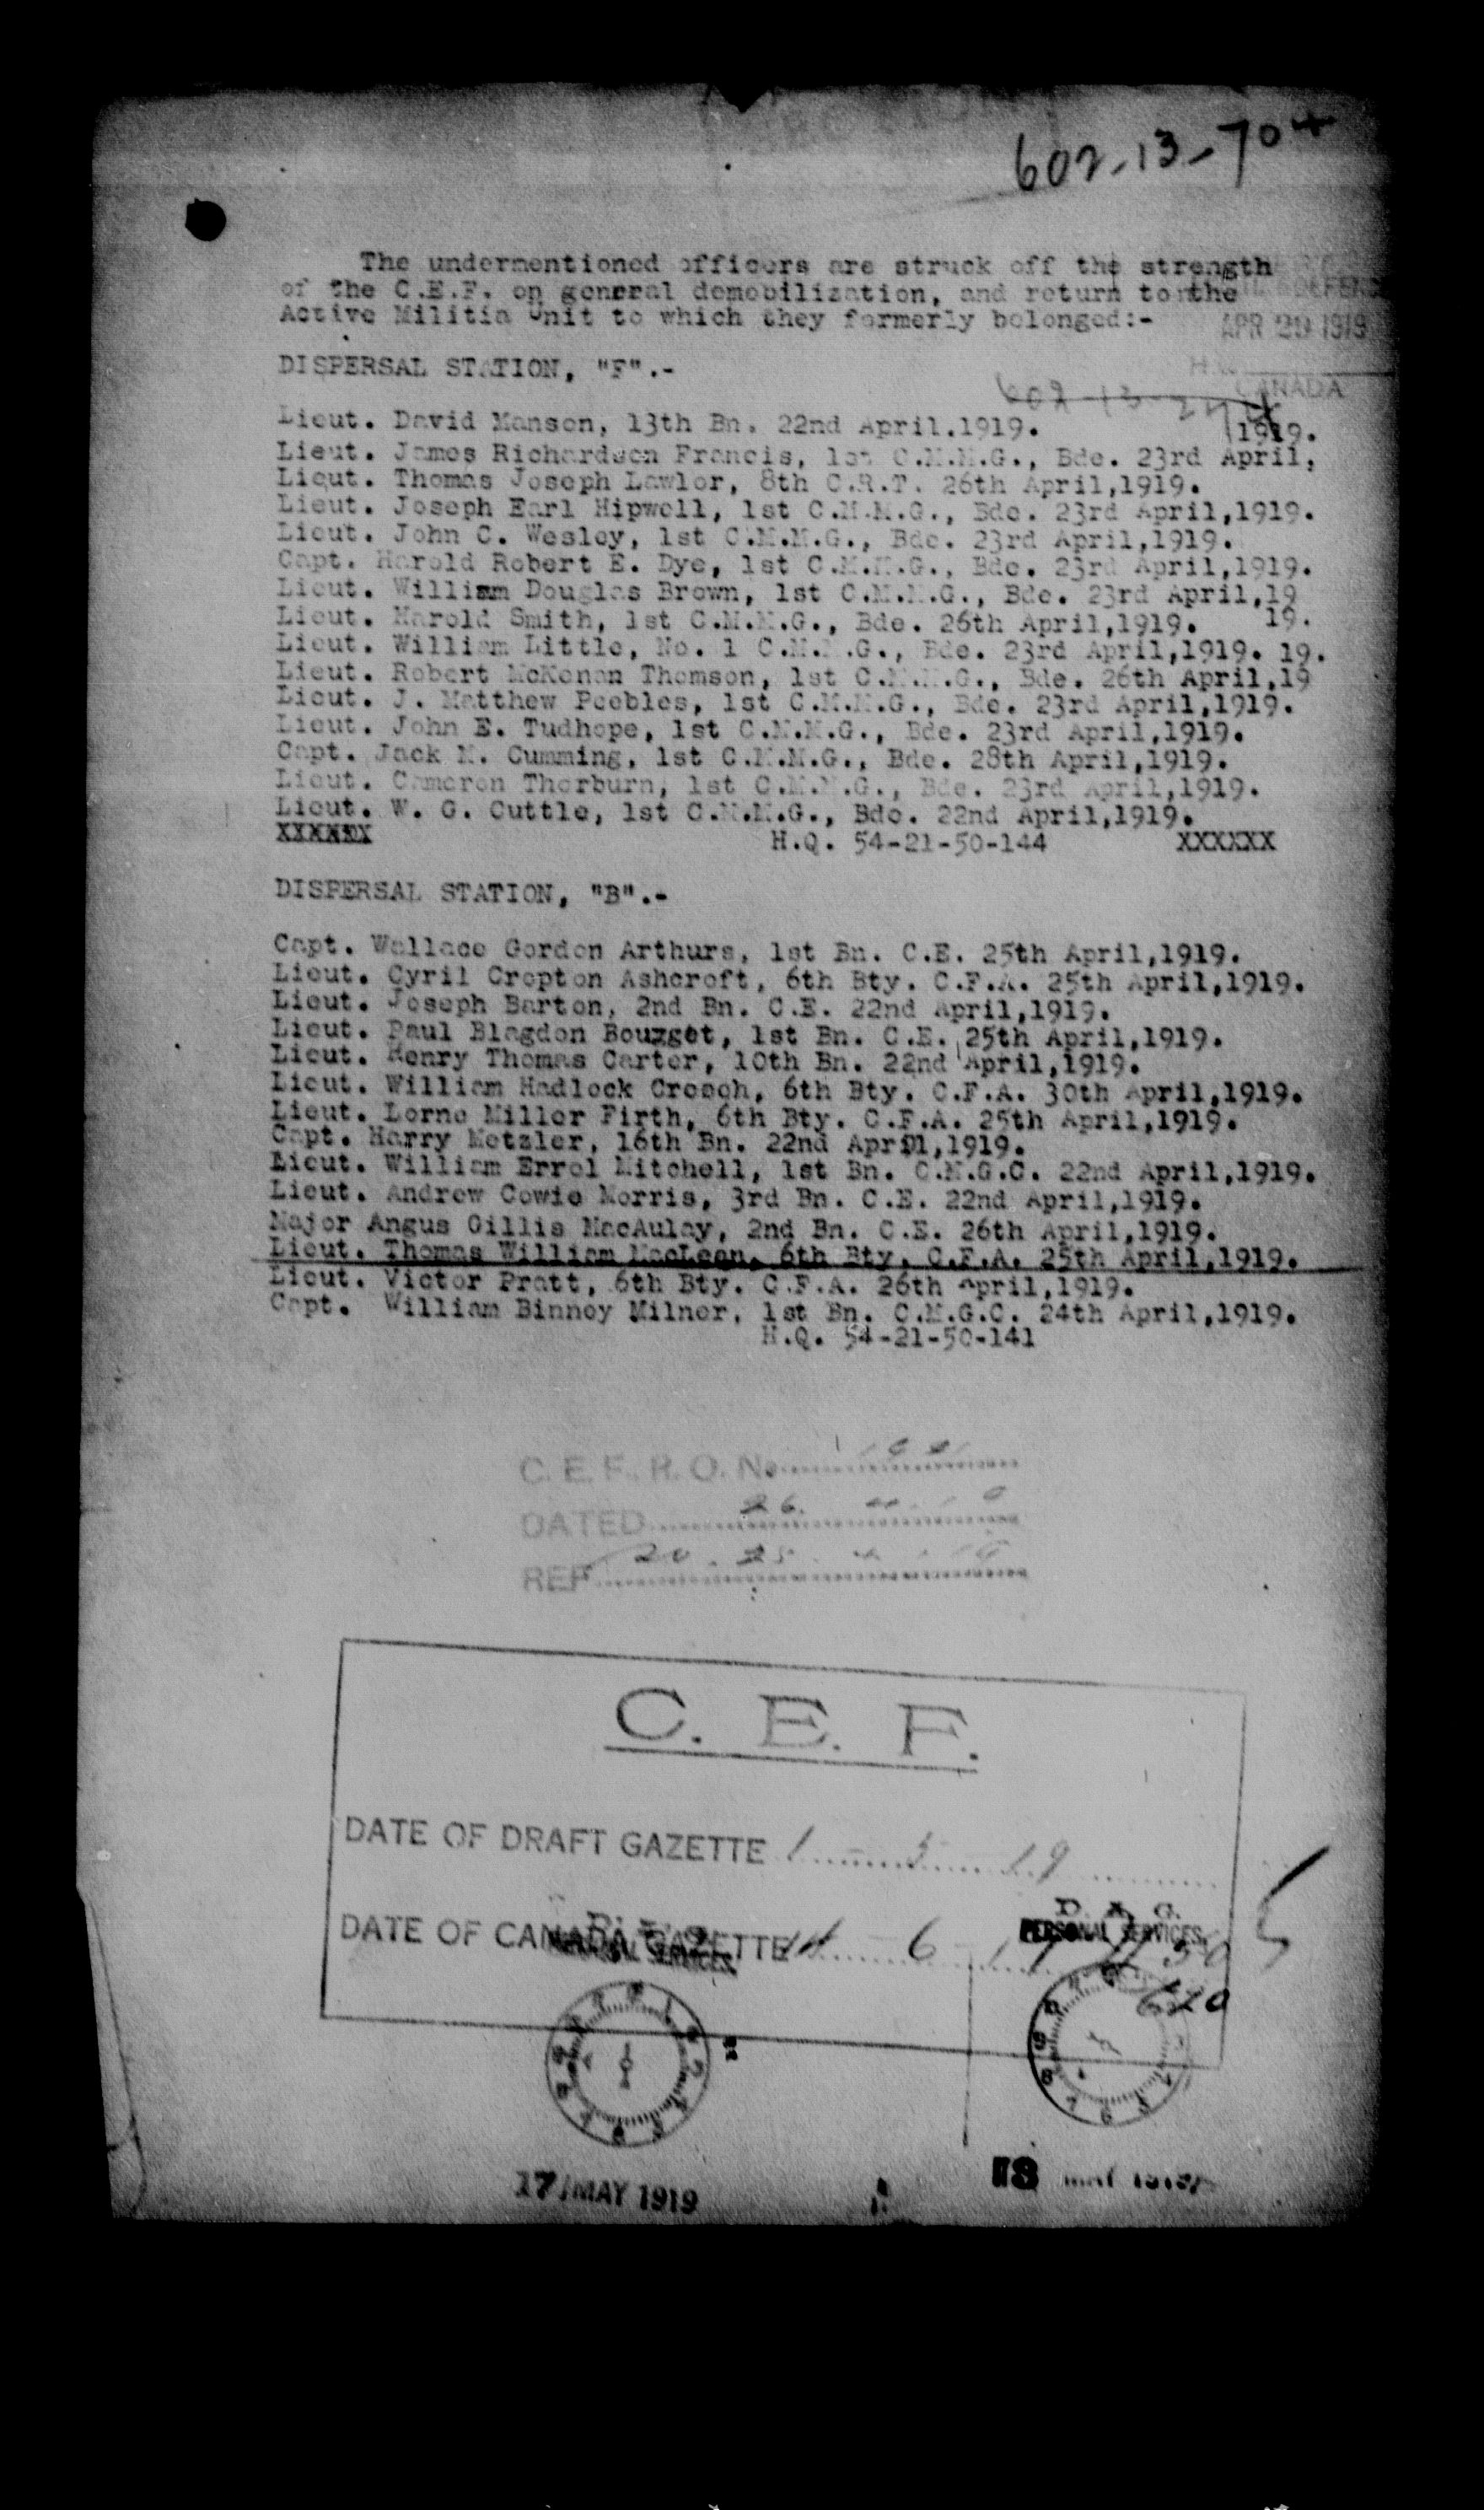 602-13-70
The undermentioned officers are struck off the strength
of the C.E.F. on general demobilization, and return to the
Active Militia Unit to which they formerly belonged:-
APR 29 1919
DISPERSAL STATION, "F".-
CANADA
Lieut. David Manson, 13th Bn. 22nd April.1919.
1919.
Lieut. James Richardson Francis, 1st C.M.M.G., Bde. 23rd April,
Lieut. Thomas Joseph Lawlor, 8th C.R.T. 26th April,1919.
Lieut. Joseph Earl Hipwell, 1st C.M.M.G., Bde. 23rd April,1919.
Lieut. John C. Wesley, 1st C.M.M.G., Bde. 23rd April,1919.
Capt. Harold Robert E. Dye, 1st C.M.M.G., Bde. 23rd April,1919.
Lieut. William Douglas Brown, 1st C.M.M.G., Bde. 23rd April,19
Lieut. Harold Smith, 1st C.M.M.G., Bde. 26th April,1919. 19.
Lieut. William Little, No. 1 C.M.M.G., Bde. 23rd April,1919. 19.
Lieut. Robert McKenan Thomson, 1st C.M.M.G., Bde. 26th April,19
Lieut. J. Matthew Peebles, 1st C.M.M.G., Bde. 23rd April,1919.
Lieut. John E. Tudhope, 1st C.M.M.G., Bde. 23rd April,1919.
Capt. Jack M. Cumming, 1st C.M.M.G., Bde. 28th April,1919.
Lieut. Cameron Thorburn, 1st C.M.M.G., Bde. 23rd April,1919.
Lieut. W. G. Cuttle, 1st C.M.M.G., Bde. 22nd April,1919.
XXXXXX H.Q. 54-21-50-144 XXXXXX
DISPERSAL STATION, "B".-
Capt. Wallace Gordon Arthurs, 1st Bn. C.E. 25th April,1919.
Lieut. Cyril Cropton Ashcroft, 6th Bty. C.F.A. 25th April,1919.
Lieut. Joseph Barton, 2nd Bn. C.E. 22nd April,1919.
Lieut. Paul Blagdon Bouzget, 1st Bn. C.E. 25th April,1919.
Lieut. Henry Thomas Carter, 10th Bn. 22nd April,1919.
Lieut. William Hadlock Creegh, 6th Bty. C.F.A. 30th April,1919.
Lieut. Lorne Miller Firth, 6th Bty. C.F.A. 25th April,1919.
Capt. Harry Metzler, 16th Bn. 22nd April,1919.
Lieut. William Errol Mitchell, 1st Bn. C.M.G.C. 22nd April,1919.
Lieut. Andrew Cowie Morris, 3rd Bn. C.E. 22nd April,1919.
Major Angus Gillis MacAulay, 2nd Bn. C.E. 26th April,1919.
Lieut. Thomas William MacLean, 6th Bty. C.F.A. 25th April,1919.
Lieut. Victor Pratt, 6th Bty. C.F.A. 26th April,1919.
Capt. William Binney Milner, 1st Bn. C.M.G.C. 24th April,1919.
H.Q. 54-21-50-141
C.E.F. R.O. No
DATED 26.
REF
C. E. F.
DATE OF DRAFT GAZETTE 1 5 19
DATE OF CANADA GAZETTE 6
PERSONAL SERVICES
17 MAY 1919